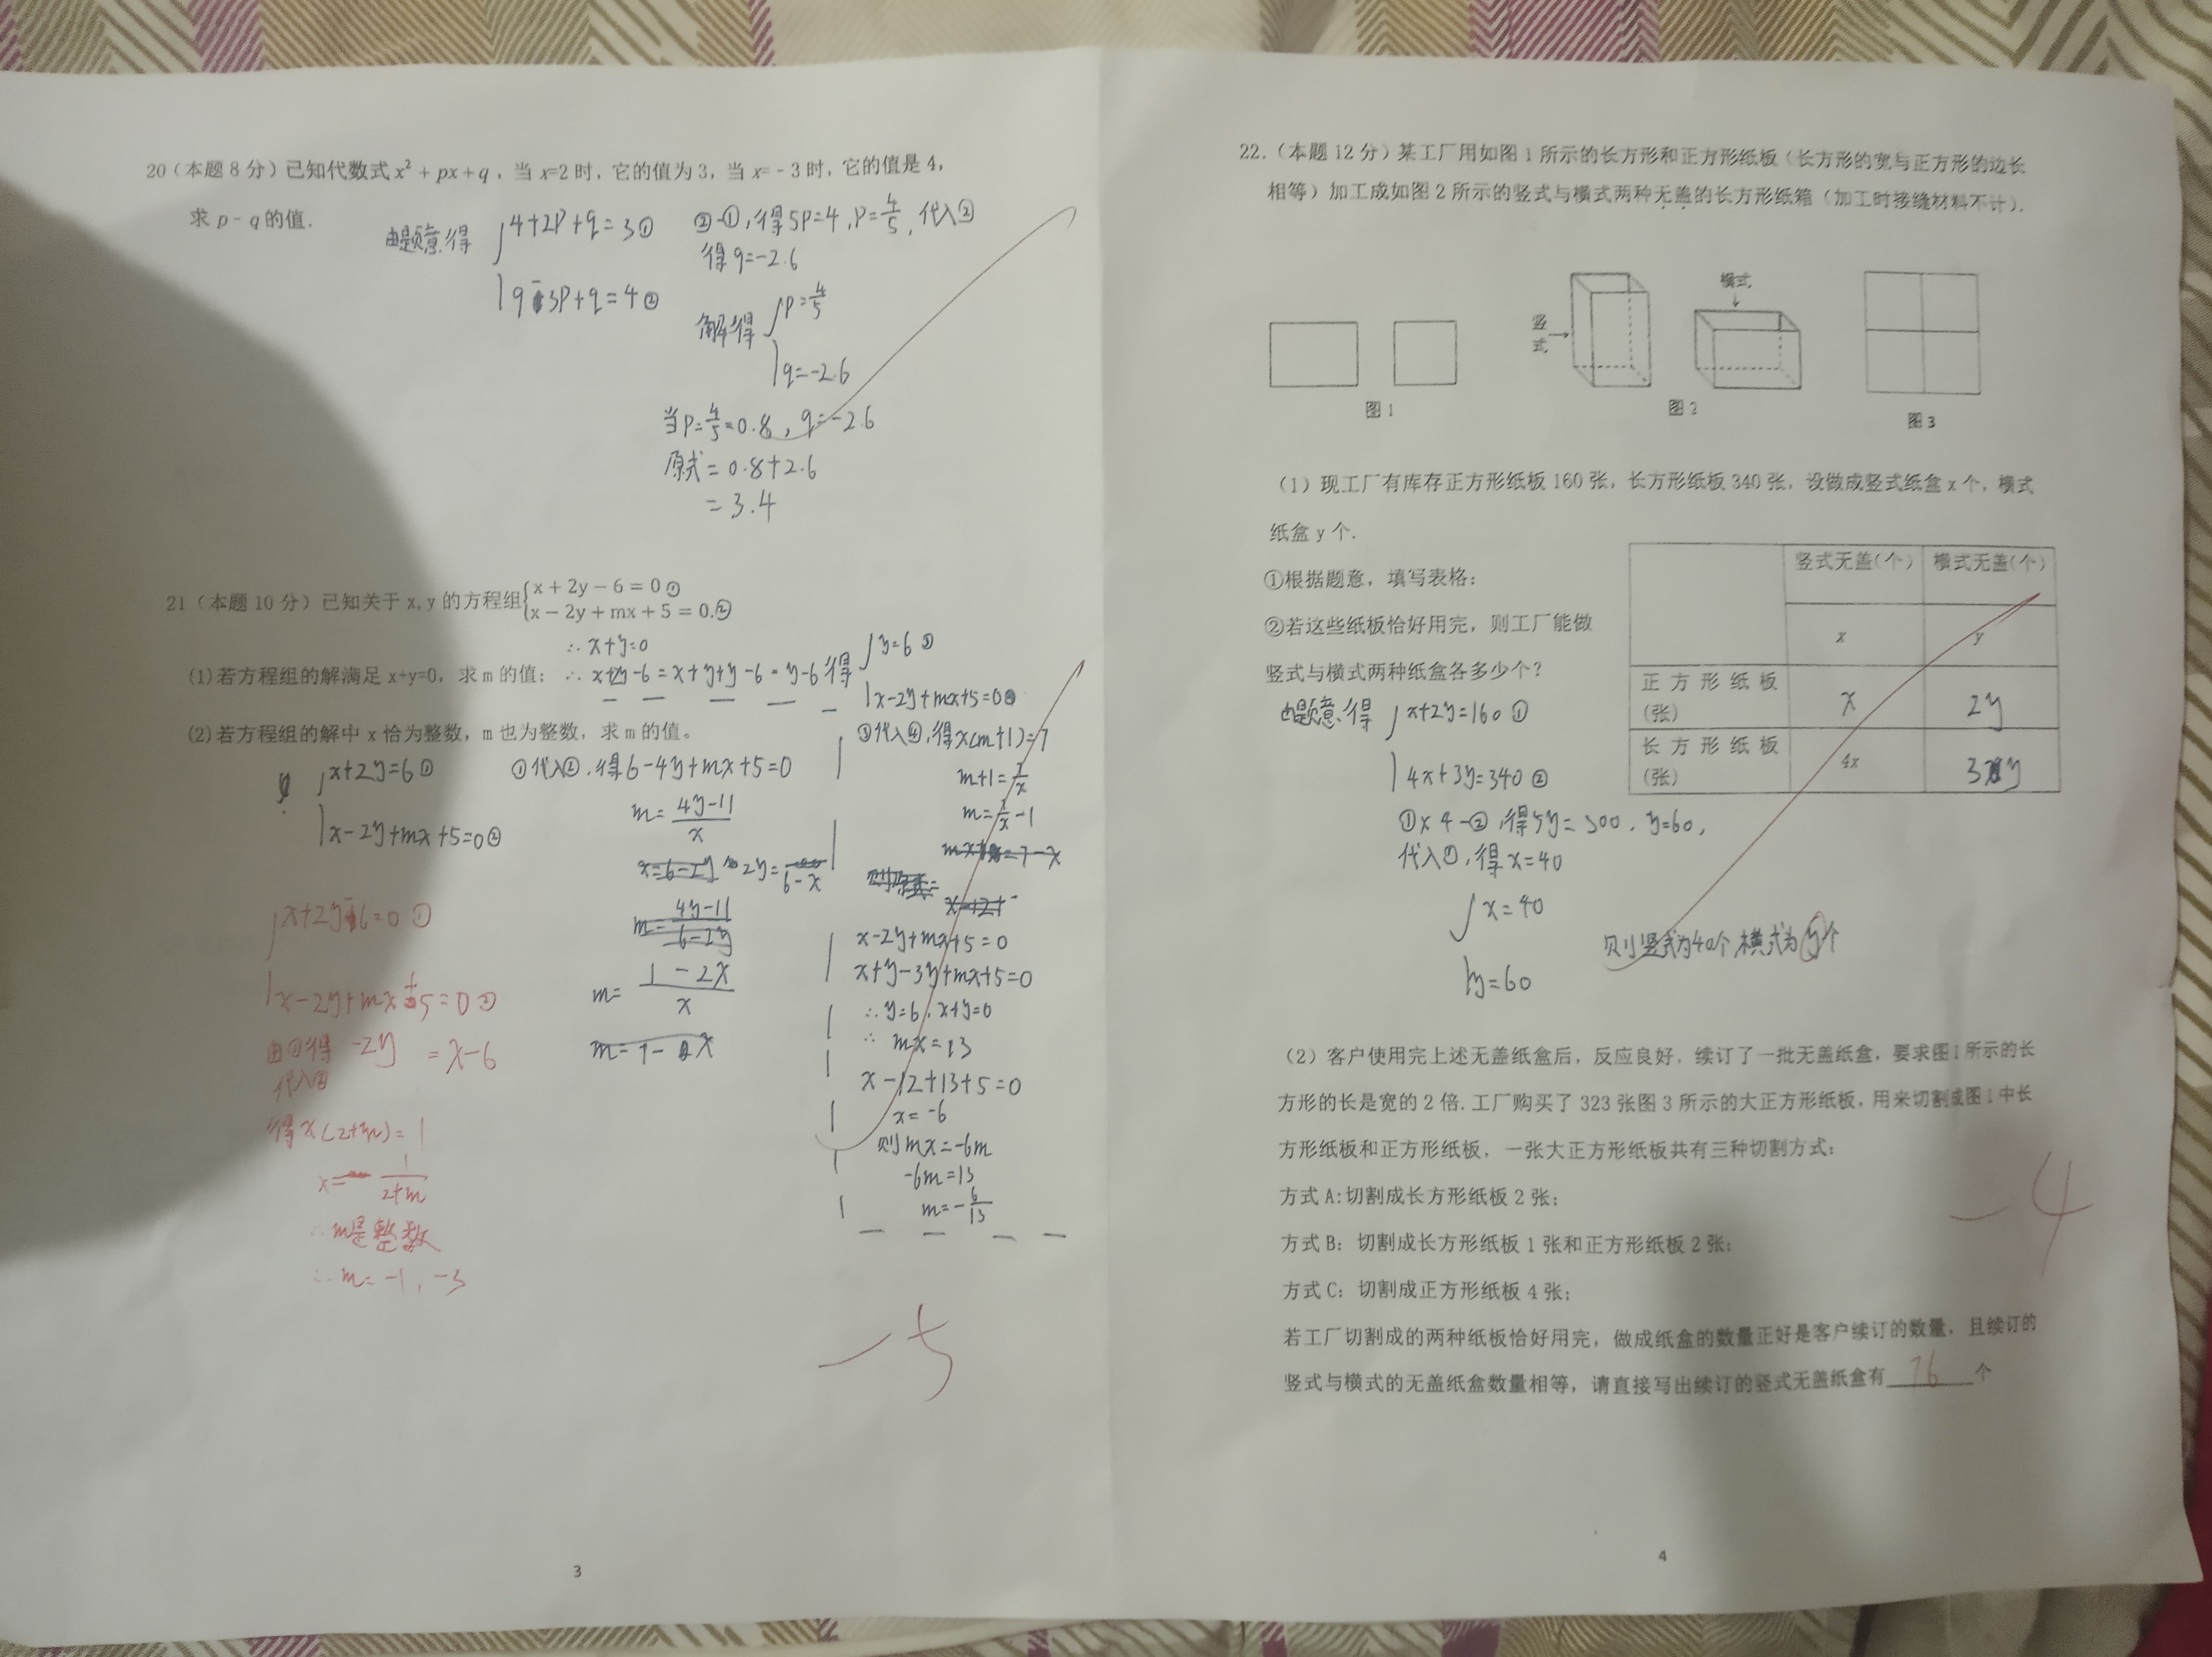 20（本题8分）已知代数式 x² + px + q，当 x=2 时，它的值为 3，当 x=－3 时，它的值是 4，
求 p－q 的值．
由题意，得
4+2P+q=3①
9-3P+q=4②
②-①，得5P=4，P=4/5，代入②
得q=-2.6
解得
P=4/5
q=-2.6
当P=4/5=0.8，q=-2.6
原式=0.8+2.6
=3.4
21（本题10分）已知关于 x, y 的方程组
x + 2y − 6 = 0 ①
x − 2y + mx + 5 = 0.②
∵x+y=0
(1)若方程组的解满足 x+y=0，求 m 的值；
∴x+2y-6=x+y+y-6=y-6 得
y=6 ③
x-2y+mx+5=0④
(2)若方程组的解中 x 恰为整数，m 也为整数，求 m 的值。
x+2y=6①
x-2y+mx+5=0②
①代入②，得6-4y+mx+5=0
m=(4y-11)/x
m=(1-2x)/x
x+2y-6=0 ①
x-2y+mx+5=0②
由①得 -2y =x-6
代入②
得x(2+m)=1
x=1/(2+m)
∵m是整数
∴m=-1，-3
③代入④，得x(m+1)=7
m+1=7/x
m=7/x-1
x-2y+mx+5=0
x+y-3y+mx+5=0
∵y=6，x+y=0
∴mx=13
x-12+13+5=0
x=-6
则mx=-6m
-6m=13
m=-6/13
-5
3
22.（本题12分）某工厂用如图1所示的长方形和正方形纸板（长方形的宽与正方形的边长
相等）加工成如图2所示的竖式与横式两种无盖的长方形纸箱（加工时接缝材料不计）.
竖式
横式
图1
图2
图3
（1）现工厂有库存正方形纸板160张，长方形纸板340张，设做成竖式纸盒x个，横式
纸盒y个.
①根据题意，填写表格：
②若这些纸板恰好用完，则工厂能做
竖式与横式两种纸盒各多少个？
竖式无盖(个) 横式无盖(个)
x y
正方形纸板(张) x 2y
长方形纸板(张) 4x 3y
由题意，得
x+2y=160①
4x+3y=340②
①×4-②，得5y=300，y=60，
代入①，得x=40
x=40
y=60
则竖式为40个，横式为y个
（2）客户使用完上述无盖纸盒后，反应良好，续订了一批无盖纸盒，要求图1所示的长
方形的长是宽的2倍.工厂购买了323张图3所示的大正方形纸板，用来切割成图1中长
方形纸板和正方形纸板，一张大正方形纸板共有三种切割方式：
方式A:切割成长方形纸板2张；
方式B：切割成长方形纸板1张和正方形纸板2张；
方式C：切割成正方形纸板4张；
-4
若工厂切割成的两种纸板恰好用完，做成纸盒的数量正好是客户续订的数量，且续订的
竖式与横式的无盖纸盒数量相等，请直接写出续订的竖式无盖纸盒有 76 个
4